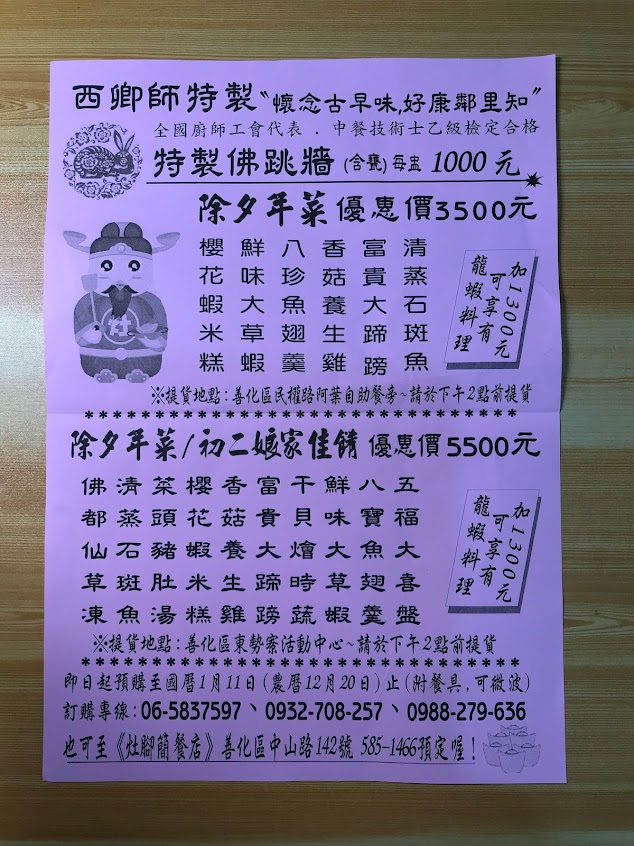 西卿師特製〝懷念古早味,好康鄰里知〞
全國廚師工會代表．中餐技術士乙級檢定合格
特製佛跳牆 (含甕) 每盅 1000 元
除夕年菜 優惠價3500元
清蒸石斑魚
富貴大蹄膀
香菇養生雞
八珍魚翅羹
鮮味大草蝦
櫻花蝦米糕
加1300元
可享有
龍蝦料理
※提貨地點:善化區民權路阿葉自助餐旁~請於下午2點前提貨
除夕年菜/初二娘家佳餚 優惠價5500元
五福大喜盤
八寶魚翅羹
鮮味大草蝦
干貝燴時蔬
富貴大蹄膀
香菇養生雞
櫻花蝦米糕
菜頭豬肚湯
清蒸石斑魚
佛都仙草凍
加1300元
可享有
龍蝦料理
※提貨地點:善化區東勢寮活動中心~請於下午2點前提貨
即日起預購至國曆1月11日(農曆12月20日)止(附餐具,可微波)
訂購專線:06-5837597、0932-708-257、0988-279-636
也可至《灶腳簡餐店》善化區中山路142號 585-1466預定喔!